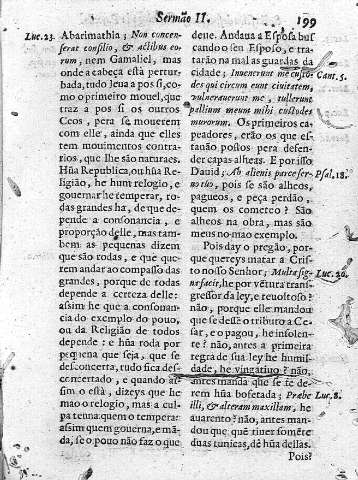 Sermão II.
199
Luc.23.
Abarimathia; Non concen-
serat consilio, & actibus eo-
rum, nem Gamaliel, mas
onde a cabeça está pertur-
bada, tudo leua a pos si, co-
mo o primeiro mouel, que
traz a pos si os outros
Ceos, pera se mouerem
com elle, ainda que elles
tem mouimentos contra-
rios, que lhe são naturaes.
Hũa Republica, ou hũa Re-
ligião, he hum relogio, e
gouernar he temperar, ro-
das grandes ha, de que de-
pende a consonancia, e
proporção delle, mas tam-
bem as pequenas dizem
que são rodas, e que que-
rem andar ao compasso das
grandes, porque de todas
depende a certeza delle:
assim he que a consonan-
cia do exemplo do pouo,
ou da Religião de todos
depende: e hũa roda por
pequena que seja, que se
desconcerta, tudo fica des-
concertado, e quando as-
sim o está, dizeys que he
mao o relogio, mas a cul-
pa tem na quem o tempera:
assim quem gouerna, e mã-
da, se o pouo não faz o que
deue. Andaua a Esposa bus
cando o seu Esposo, e tra-
tarão na mal as guardas da
cidade; Inuenerunt me custo-
Cant.5.
des qui circum eunt ciuitatem,
vulnerauerunt me, tullerunt
pallium meum mihi custodes
murorum. Os primeiros ca-
peadores, erão os que es-
tauão postos pera defen-
der capas alheas. E por isso
Dauid; Ab alienis parce ser-
Psal.18.
uo tuo, pois se são alheos,
pagueos, e peça perdão,
quem os cometeo? São
alheos na obra, mas são
meus no mao exemplo.
Pois day o pregão, por-
que quereys matar a Cris-
to nosso Senhor; Multa sig-
Luc.20.
na facit, he por vẽtura trans-
gressor da ley, e reuoltoso?
não, porque elle mandou
que se desse o tributo a Ce-
sar, e o pagou, he insolen-
te? não, antes a primeira
regra de sua ley he humil-
dade, he vingatiuo? não,
antes manda que se te de-
rem hũa bofetada; Præbe
Luc.8.
illi, & alteram maxillam, he
auarento? não, antes man-
dou que quẽ tiuer sómẽte
duas tunicas, dé hũa dellas.
Pois?